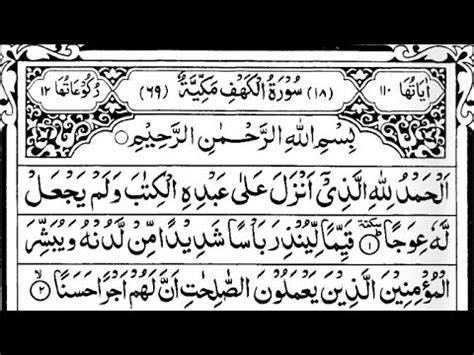 اٰيَاتُهَا ١١٠ (١٨) سُوْرَةُ الْكَهْفِ مَكِّيَّةٌ (٦٩) رُكُوْعَاتُهَا ١٢
بِسْمِ اللّٰهِ الرَّحْمٰنِ الرَّحِيْمِ
اَلْحَمْدُ لِلّٰهِ الَّذِيْۤ اَنْزَلَ عَلٰى عَبْدِهِ الْكِتٰبَ وَلَمْ يَجْعَلْ
لَّهٗ عِوَجًا ۜ ١ قَيِّمًا لِّيُنْذِرَ بَاْسًا شَدِيْدًا مِّنْ لَّدُنْهُ وَيُبَشِّرَ
الْمُؤْمِنِيْنَ الَّذِيْنَ يَعْمَلُوْنَ الصّٰلِحٰتِ اَنَّ لَهُمْ اَجْرًا حَسَنًا ۙ ٢